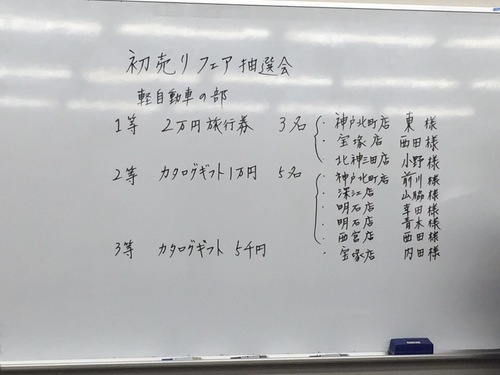 初売りフェア抽選会
軽自動車の部
1等 2万円旅行券 3名 ・神戸北町店 東様
・宝塚店 西田様
・北神三田店 小野様
2等 カタログギフト1万円 5名 ・神戸北町店 前川様
・深江店 山脇様
・明石店 幸田様
・明石店 青木様
・西宮店 西田様
3等 カタログギフト 5千円 ・宝塚店 内田様